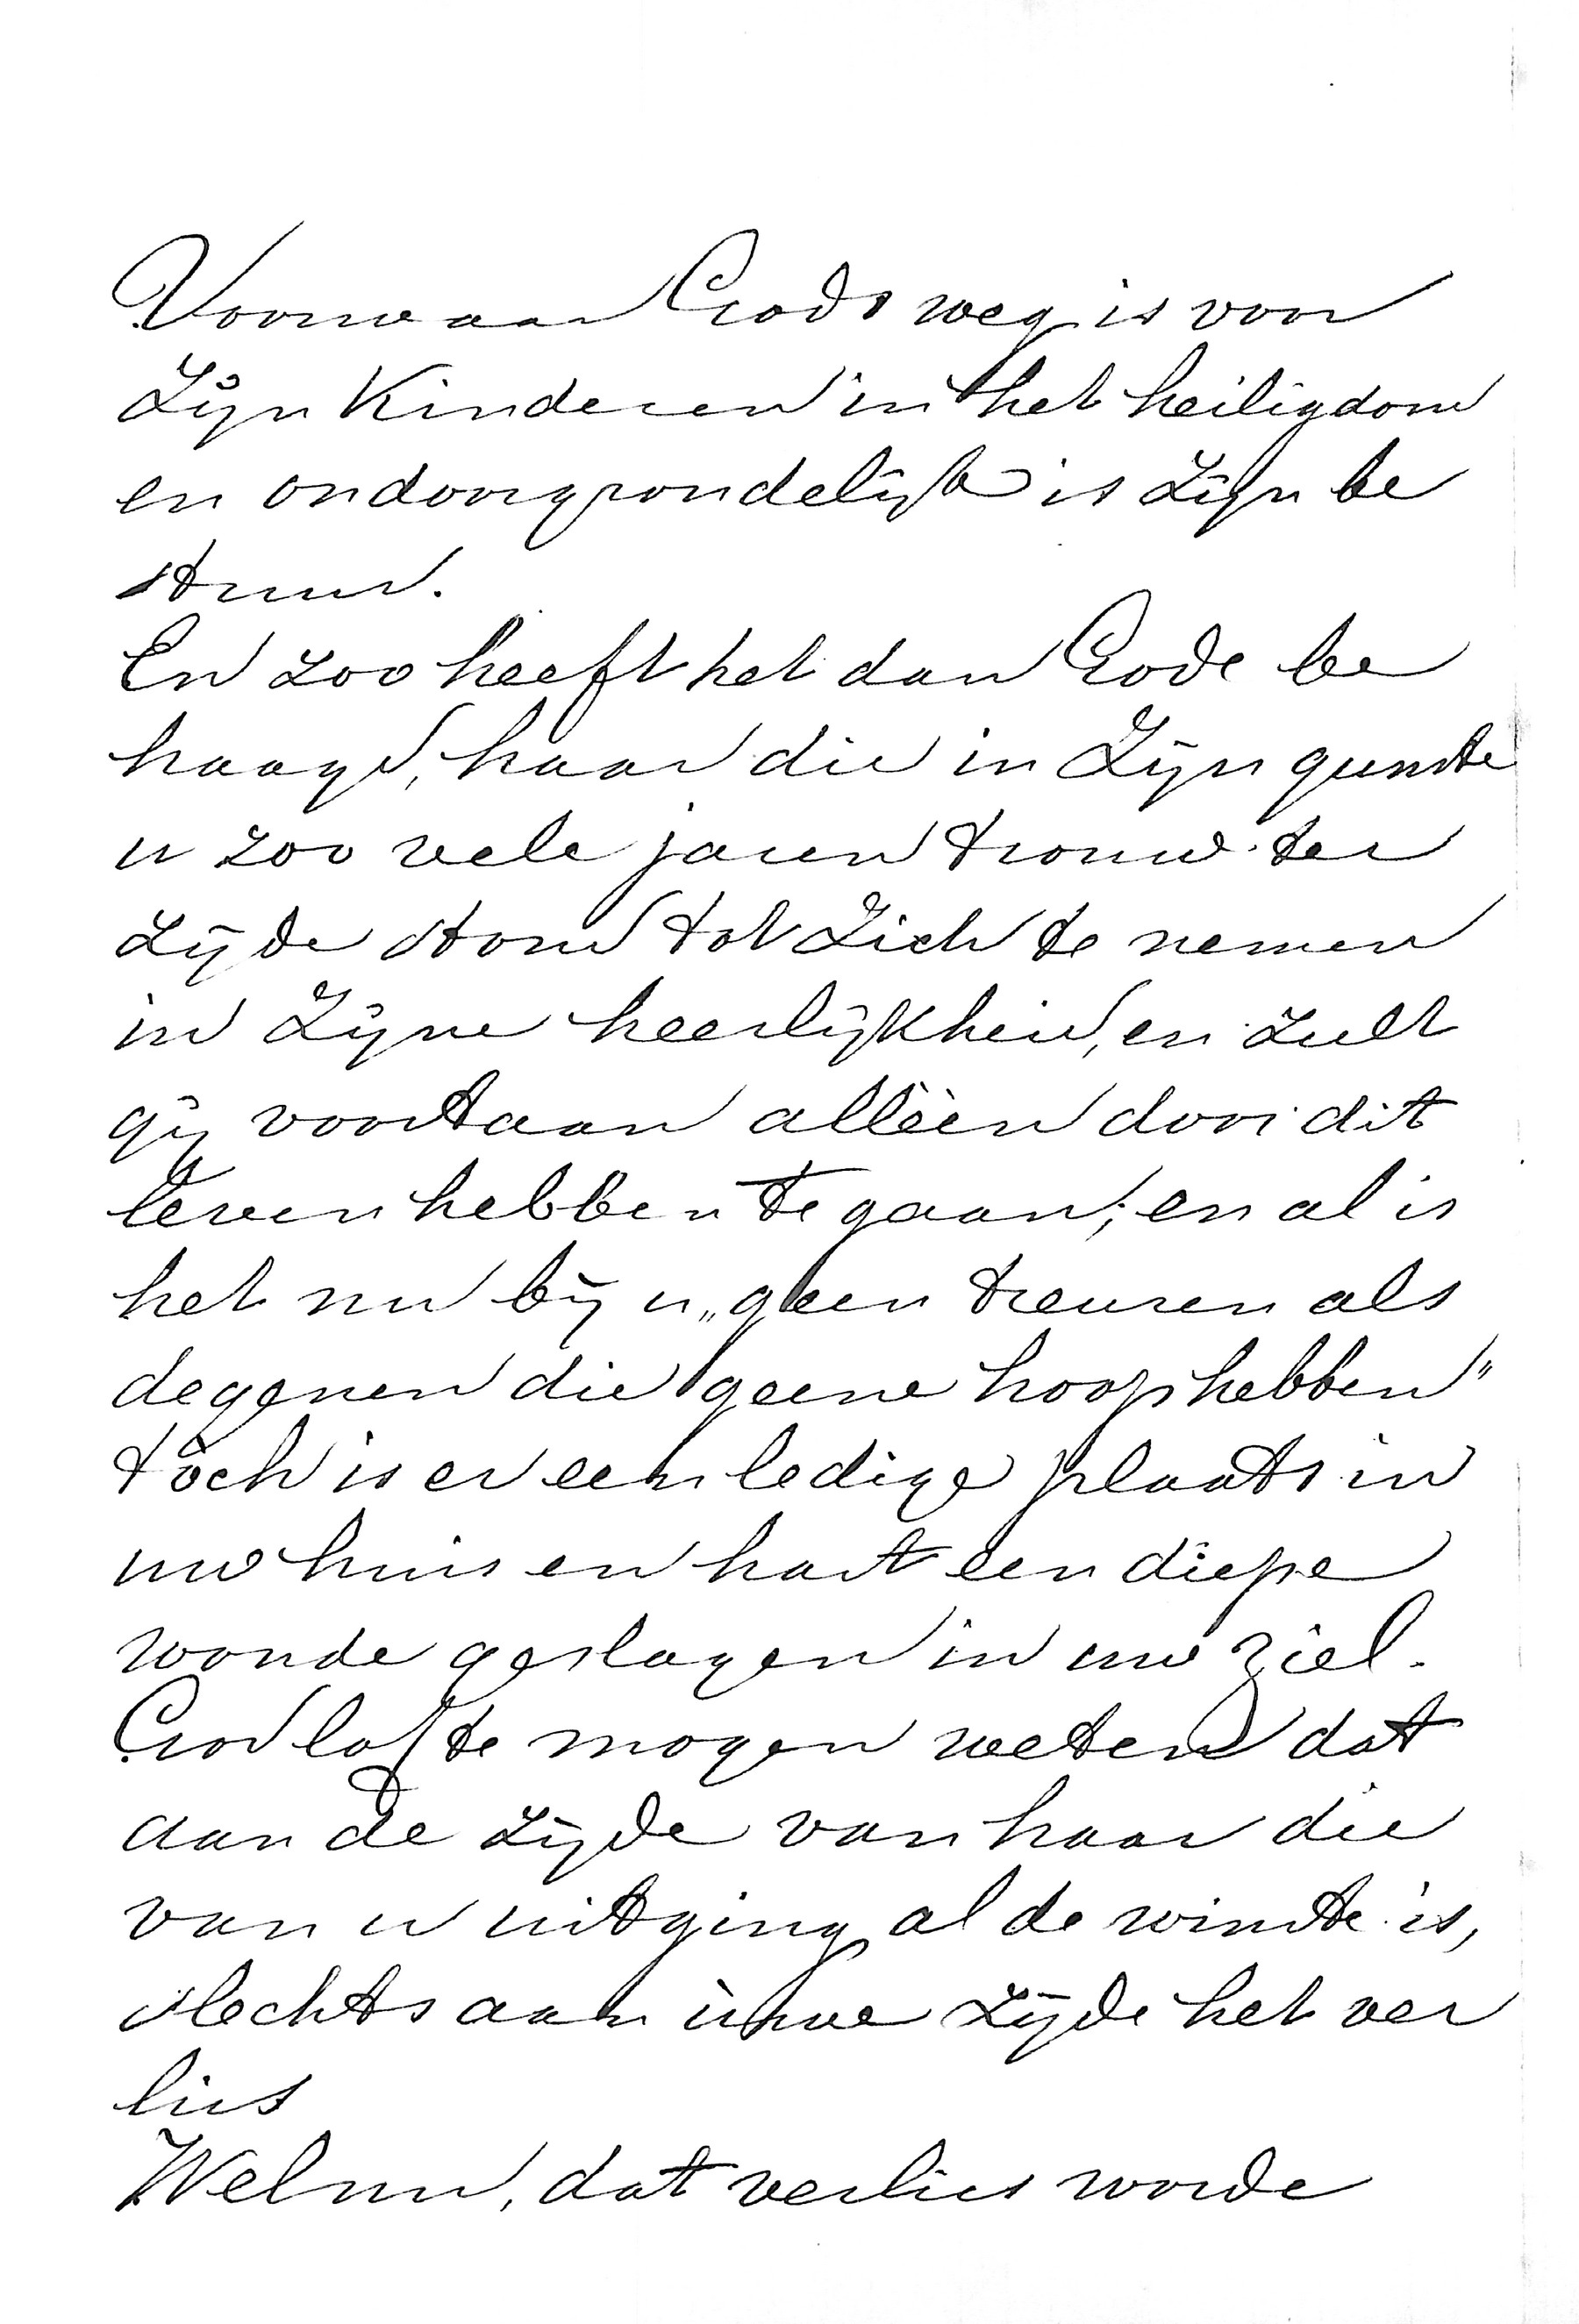 Voorwaar Gods weg is voor
Zijn Kinderen in het heiligdom
en ondoorgrondelijk is Zijn be
stuur.
En zoo heeft het dan Gode be
haagd, haar die in Zijn gunste
u zoo vele jaren trouw ter
zijde stond tot Zich te nemen
in Zijne heerlijkheid, en zult
gij voortaan allèèn door dit
leven hebben te gaan; en al is
het nu bij u „geen treuren als
degenen die geene hoop hebben"
tòch is er een ledige plaats in
uw huis en hart een diepe
wonde geslagen in uw ziel.
God lof te mogen weten dat
aan de zijde van haar die
van u uitging al de winste is,
slechts aan ùwe zijde het ver
lies
Welnu, dat verlies worde